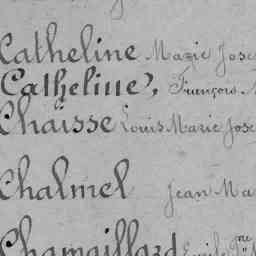 Catheline Marie Jose
Catheline, François
Chaisse Louis Marie Jose
Chalmel Jean Ma
Chamaillard Emile